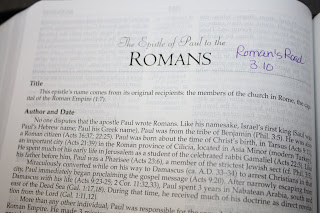 The Epistle of Paul to the
ROMANS
Roman's Road
3:10
Title
This epistle's name comes from its original recipients: the members of the church in Rome, the capi-
tal of the Roman Empire (1:7).
Author and Date
No one disputes that the apostle Paul wrote Romans. Like his namesake, Israel's first king (Saul was
Paul's Hebrew name; Paul his Greek name), Paul was from the tribe of Benjamin (Phil. 3:5). He was also
a Roman citizen (Acts 16:37; 22:25). Paul was born about the time of Christ's birth, in Tarsus (Acts 9:11),
an important city (Acts 21:39) in the Roman province of Cilicia, located in Asia Minor (modern Turkey).
He spent much of his early life in Jerusalem as a student of the celebrated rabbi Gamaliel (Acts 22:3). Like
his father before him, Paul was a Pharisee (Acts 23:6), a member of the strictest Jewish sect (cf. Phil. 3:5).
Miraculously converted while on his way to Damascus (ca. A.D. 33–34) to arrest Christians in that
city, Paul immediately began proclaiming the gospel message (Acts 9:20). After narrowly escaping from
Damascus with his life (Acts 9:23–25; 2 Cor. 11:32,33), Paul spent 3 years in Nabatean Arabia, south and
east of the Dead Sea (Gal. 1:17,18). During that time, he received much of his doctrine as direct revela-
tion from the Lord (Gal. 1:11,12).
More than any other individual, Paul was responsible for the
Roman Empire. He made 3